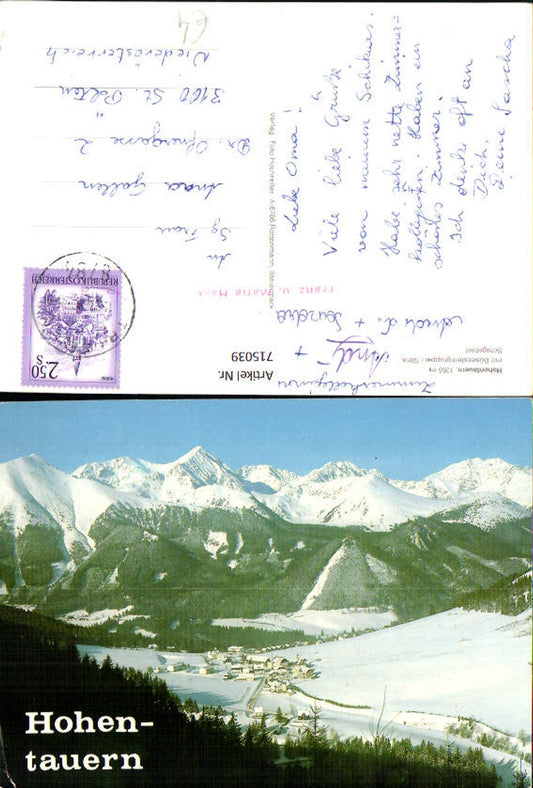 Hohentauern, 1265 m
mit Bösensteingruppe / Stmk.
Schigebiet
Artikel Nr.
715039
Franz u. Maria
Verlag: Foto Hochreiter, A-8786 Rottenmann,
Liebe Oma!
Viele liebe Grüße
von meinem Schikurs.
Habe sehr nette Zimmer-
kolleginnen. Haben ein
schönes Zimmer.
Ich denke oft an
Dich.
Deine Sascha
Zimmerkolleginnen
+ Sandra
REPUBLIK ÖSTERREICH
2.50
S
An
Sg. Frau
Anna
Dr. Ofnergasse 2
3100 St. Pölten
Niederösterreich
€4
Hohen-
tauern